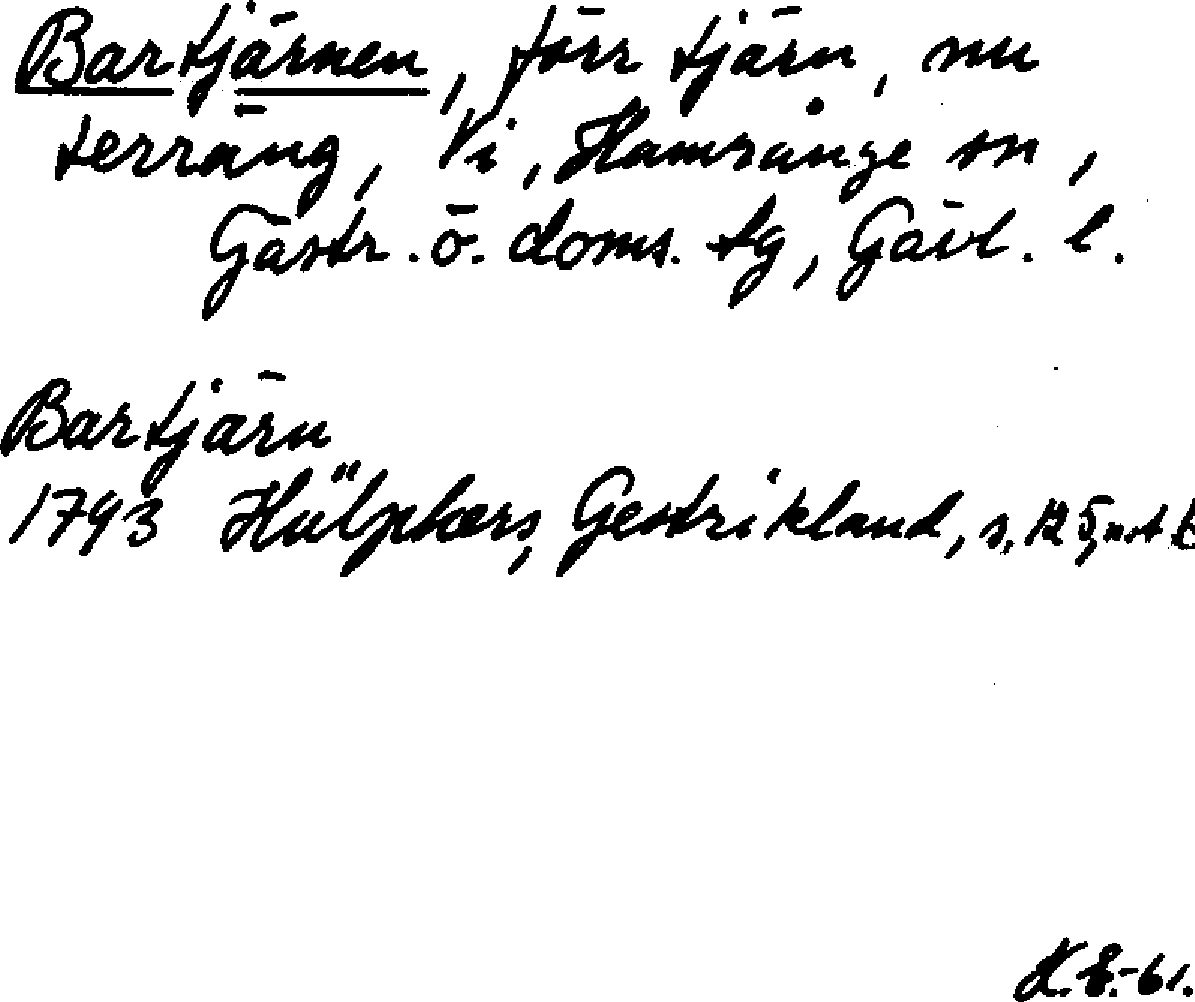 Bartjärnen, förr tjärn, nu
terräng, Vi, Hamrånge sn,
Gästr. ö. doms. tg, Gävl. l.
Bartjärn
1793 Hülphers, Gestrikland, s. 125, not
K.E.-61.